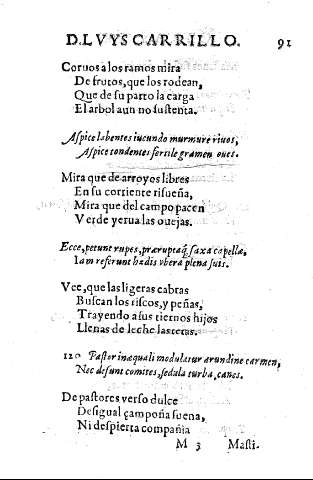 D. LVYS CARRILLO. 91
Coruos a los ramos mira
De frutos, que los rodean,
Que de su parto la carga
El arbol aun no sustenta.
Aspice labentes iucundo murmure riuos,
Aspice tondentes fertile gramen oues.
Mira que de arroyos libres
En su corriente risueña,
Mira que del campo pacen
Verde yerua las ouejas.
Ecce, petunt rupes, præruptaq; saxa capellæ,
Iam referunt hædis vbera plena suis.
Vee, que las ligeras cabras
Buscan los riscos, y peñas,
Trayendo a sus tiernos hijos
Llenas de leche las tetas.
120 Pastor inæquali modulatur arundine carmen,
Nec desunt comites, sedula turba, canes.
De pastores verso dulce
Desigual çampoña suena,
Ni despierta compañia
M 3 Masti-